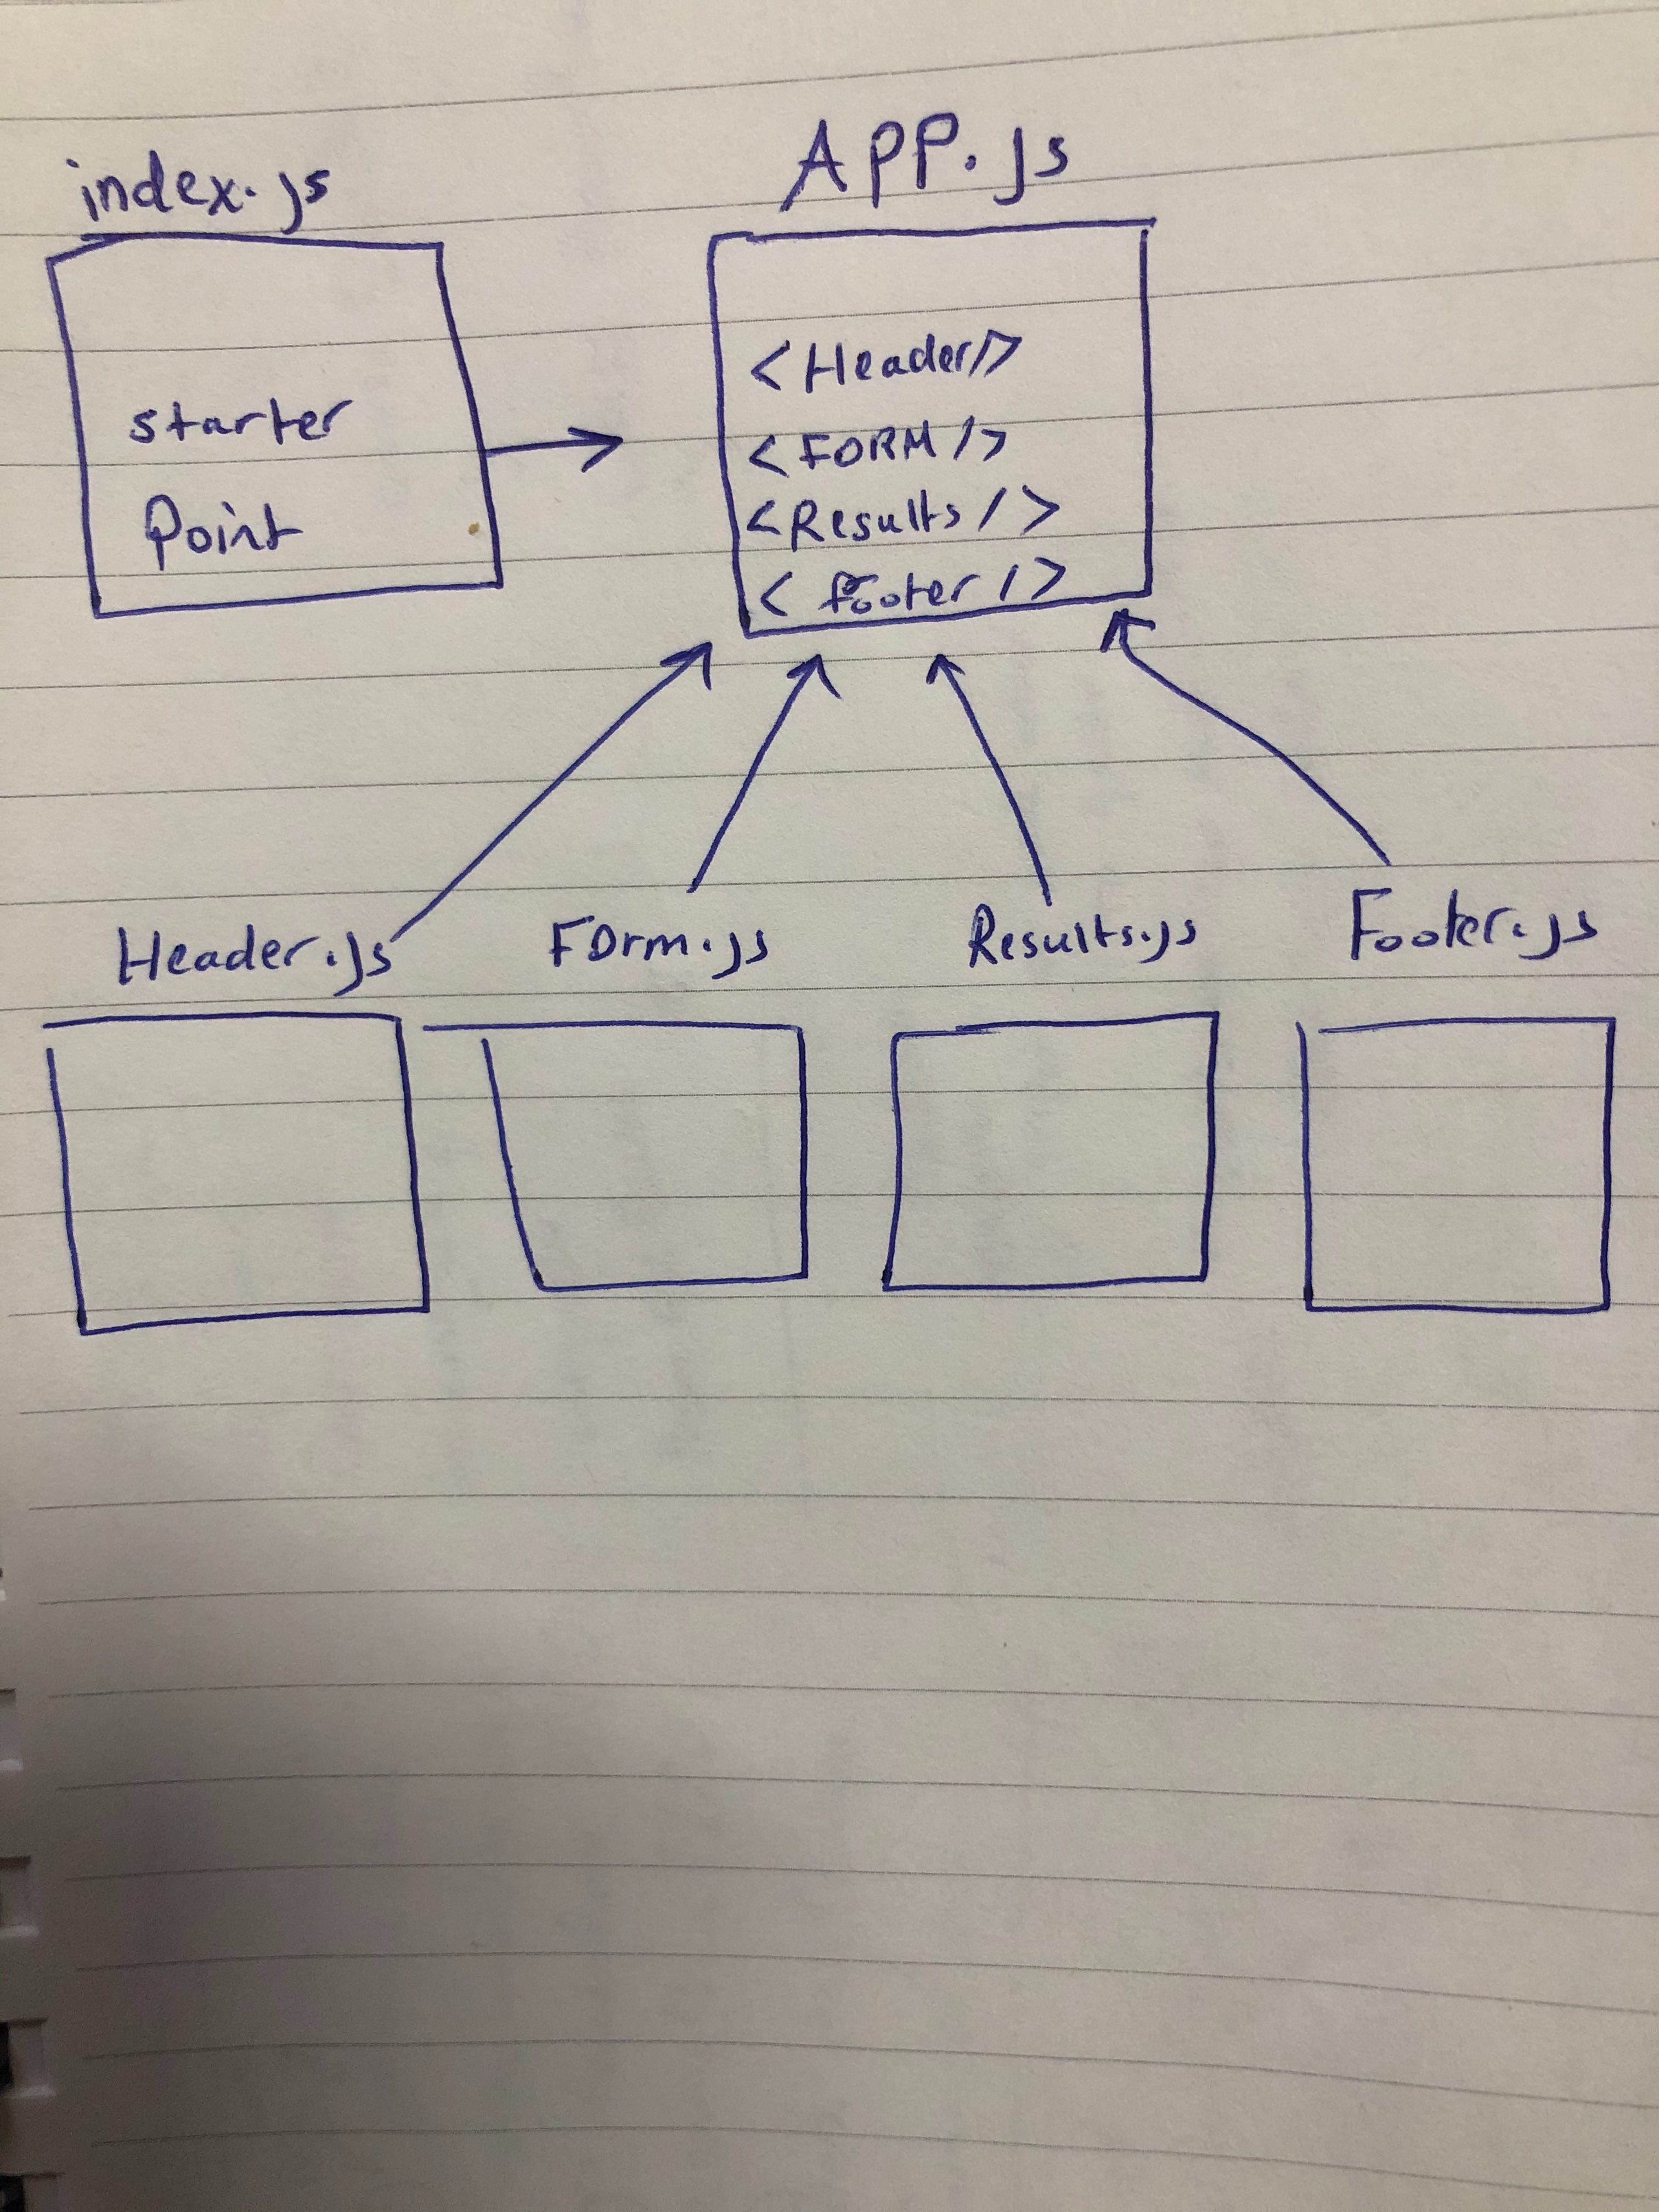 index.js
APP.js
starter
Point
<Header/>
<FORM/>
<Results/>
<footer/>
Header.js
FOrm.js
Results.js
Footer.js